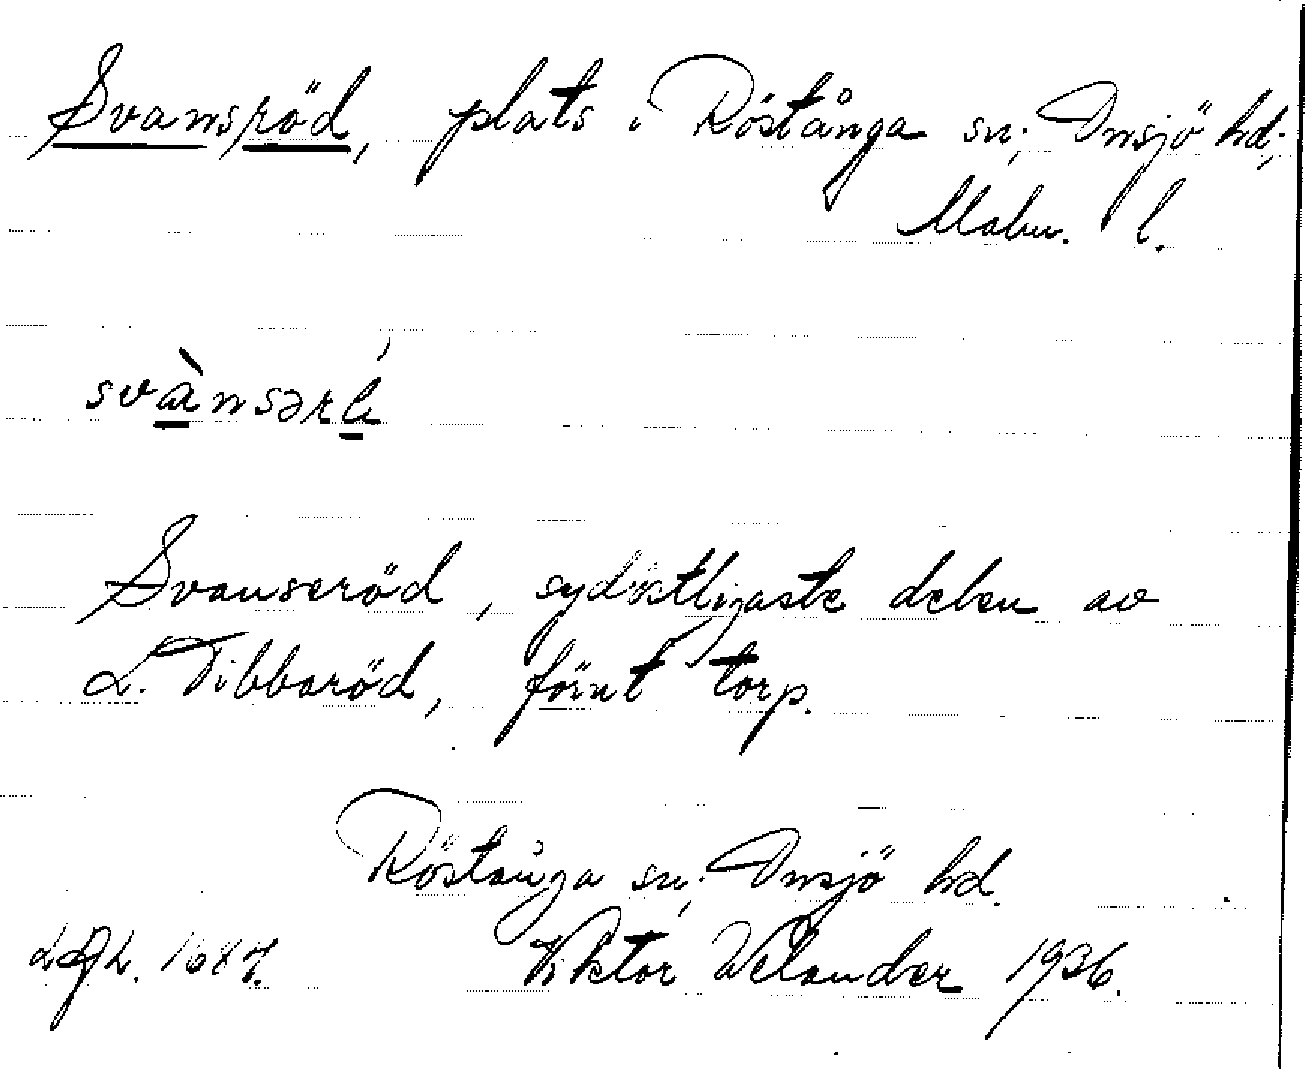 Svansröd, plats i Röstånga sn; Onsjö hd;
Malm. l.
Svanseröd, sydöstligaste delen av
L. Tibbaröd, förut torp.
Röstånga sn; Onsjö hd.
Viktor Welander 1936.